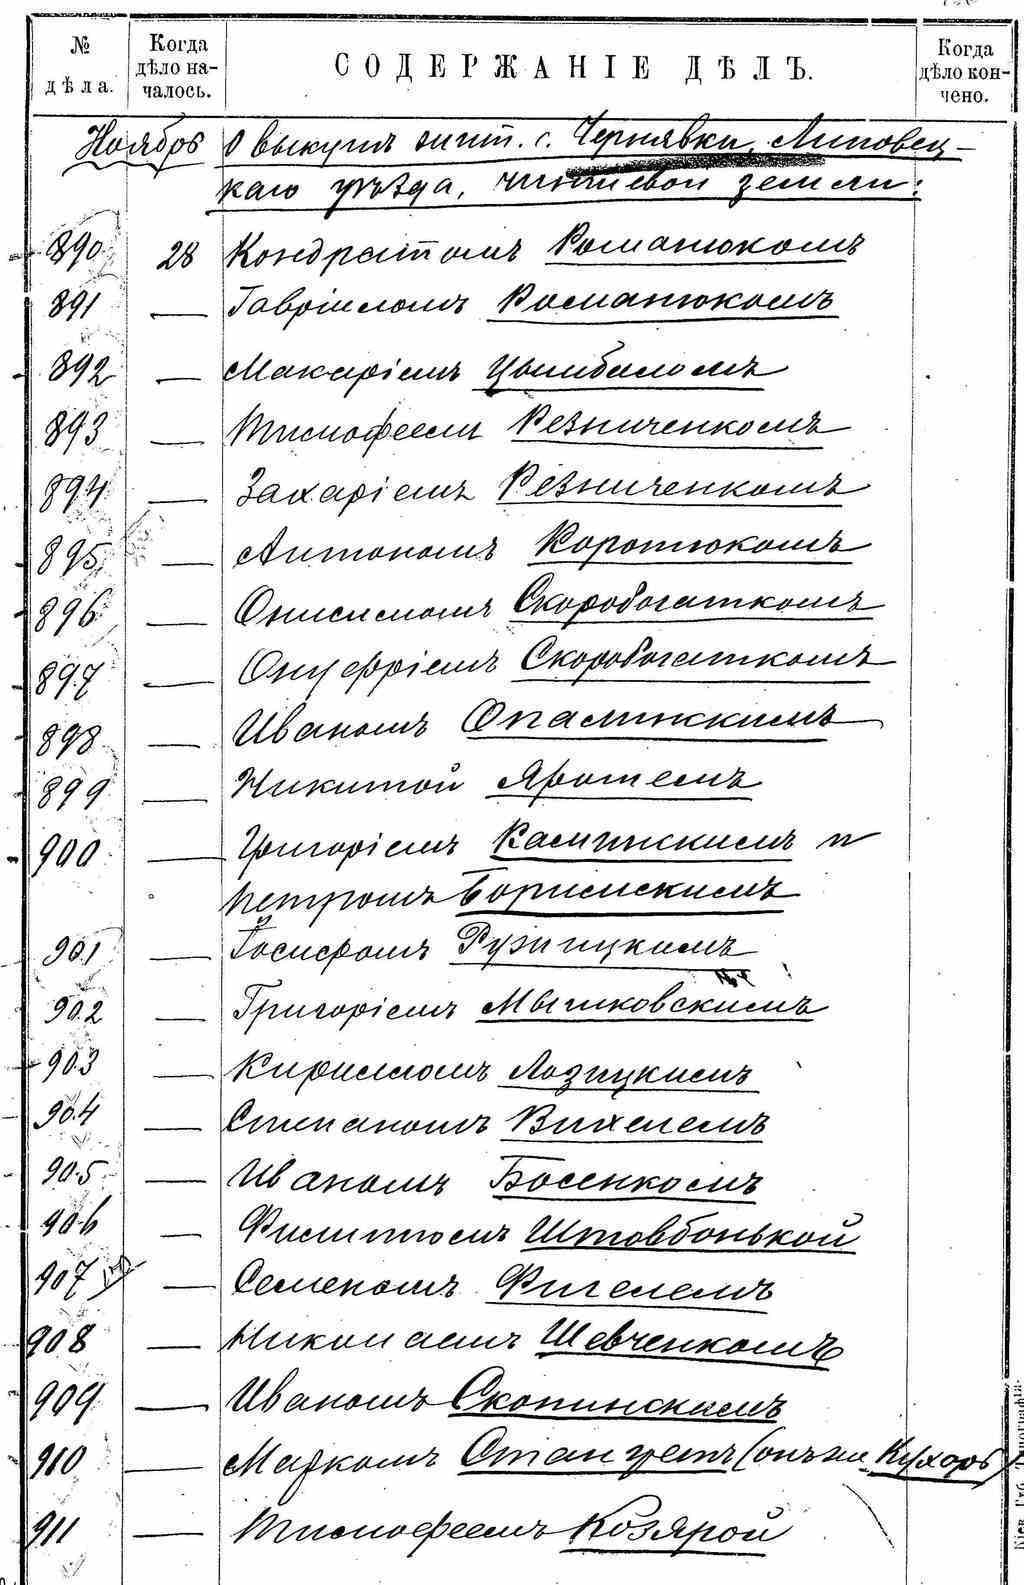 № дѣла.
Когда дѣло началось.
СОДЕРЖАНІЕ ДѢЛЪ.
Когда дѣло кончено.
Ноябрь О выкупѣ чинш. с. Чернявки, Липовец-
каго уѣзда, чиншевой земли:
890 28 Кондратомъ Романюкомъ
891 — Гавріиломъ Романюкомъ
892 — Макаріемъ Цымбаломъ
893 — Тимофеемъ Резниченкомъ
894 — Захаріемъ Резниченкомъ
895 — Антономъ Коротюкомъ
896 — Онисимомъ Скоробогаткомъ
897 — Онуфріемъ Скоробогаткомъ
898 — Иваномъ Опалинскимъ
899 — Никитой
900 — Григоріемъ Калинскимъ и
Петромъ
901 — Іосифомъ Ружицкимъ
902 — Григоріемъ Мышковскимъ
903 — Кирилломъ Лозицкимъ
904 — Степаномъ
905 — Иваномъ Босенкомъ
906 — Филиппомъ Штовбонькой
907 — Семеномъ Фигелемъ
908 — Николаемъ Шевченкомъ
909 — Иваномъ Скопинскимъ
910 — Маркомъ (онъ-же Кухоръ)
911 — Тимофеемъ Козярой